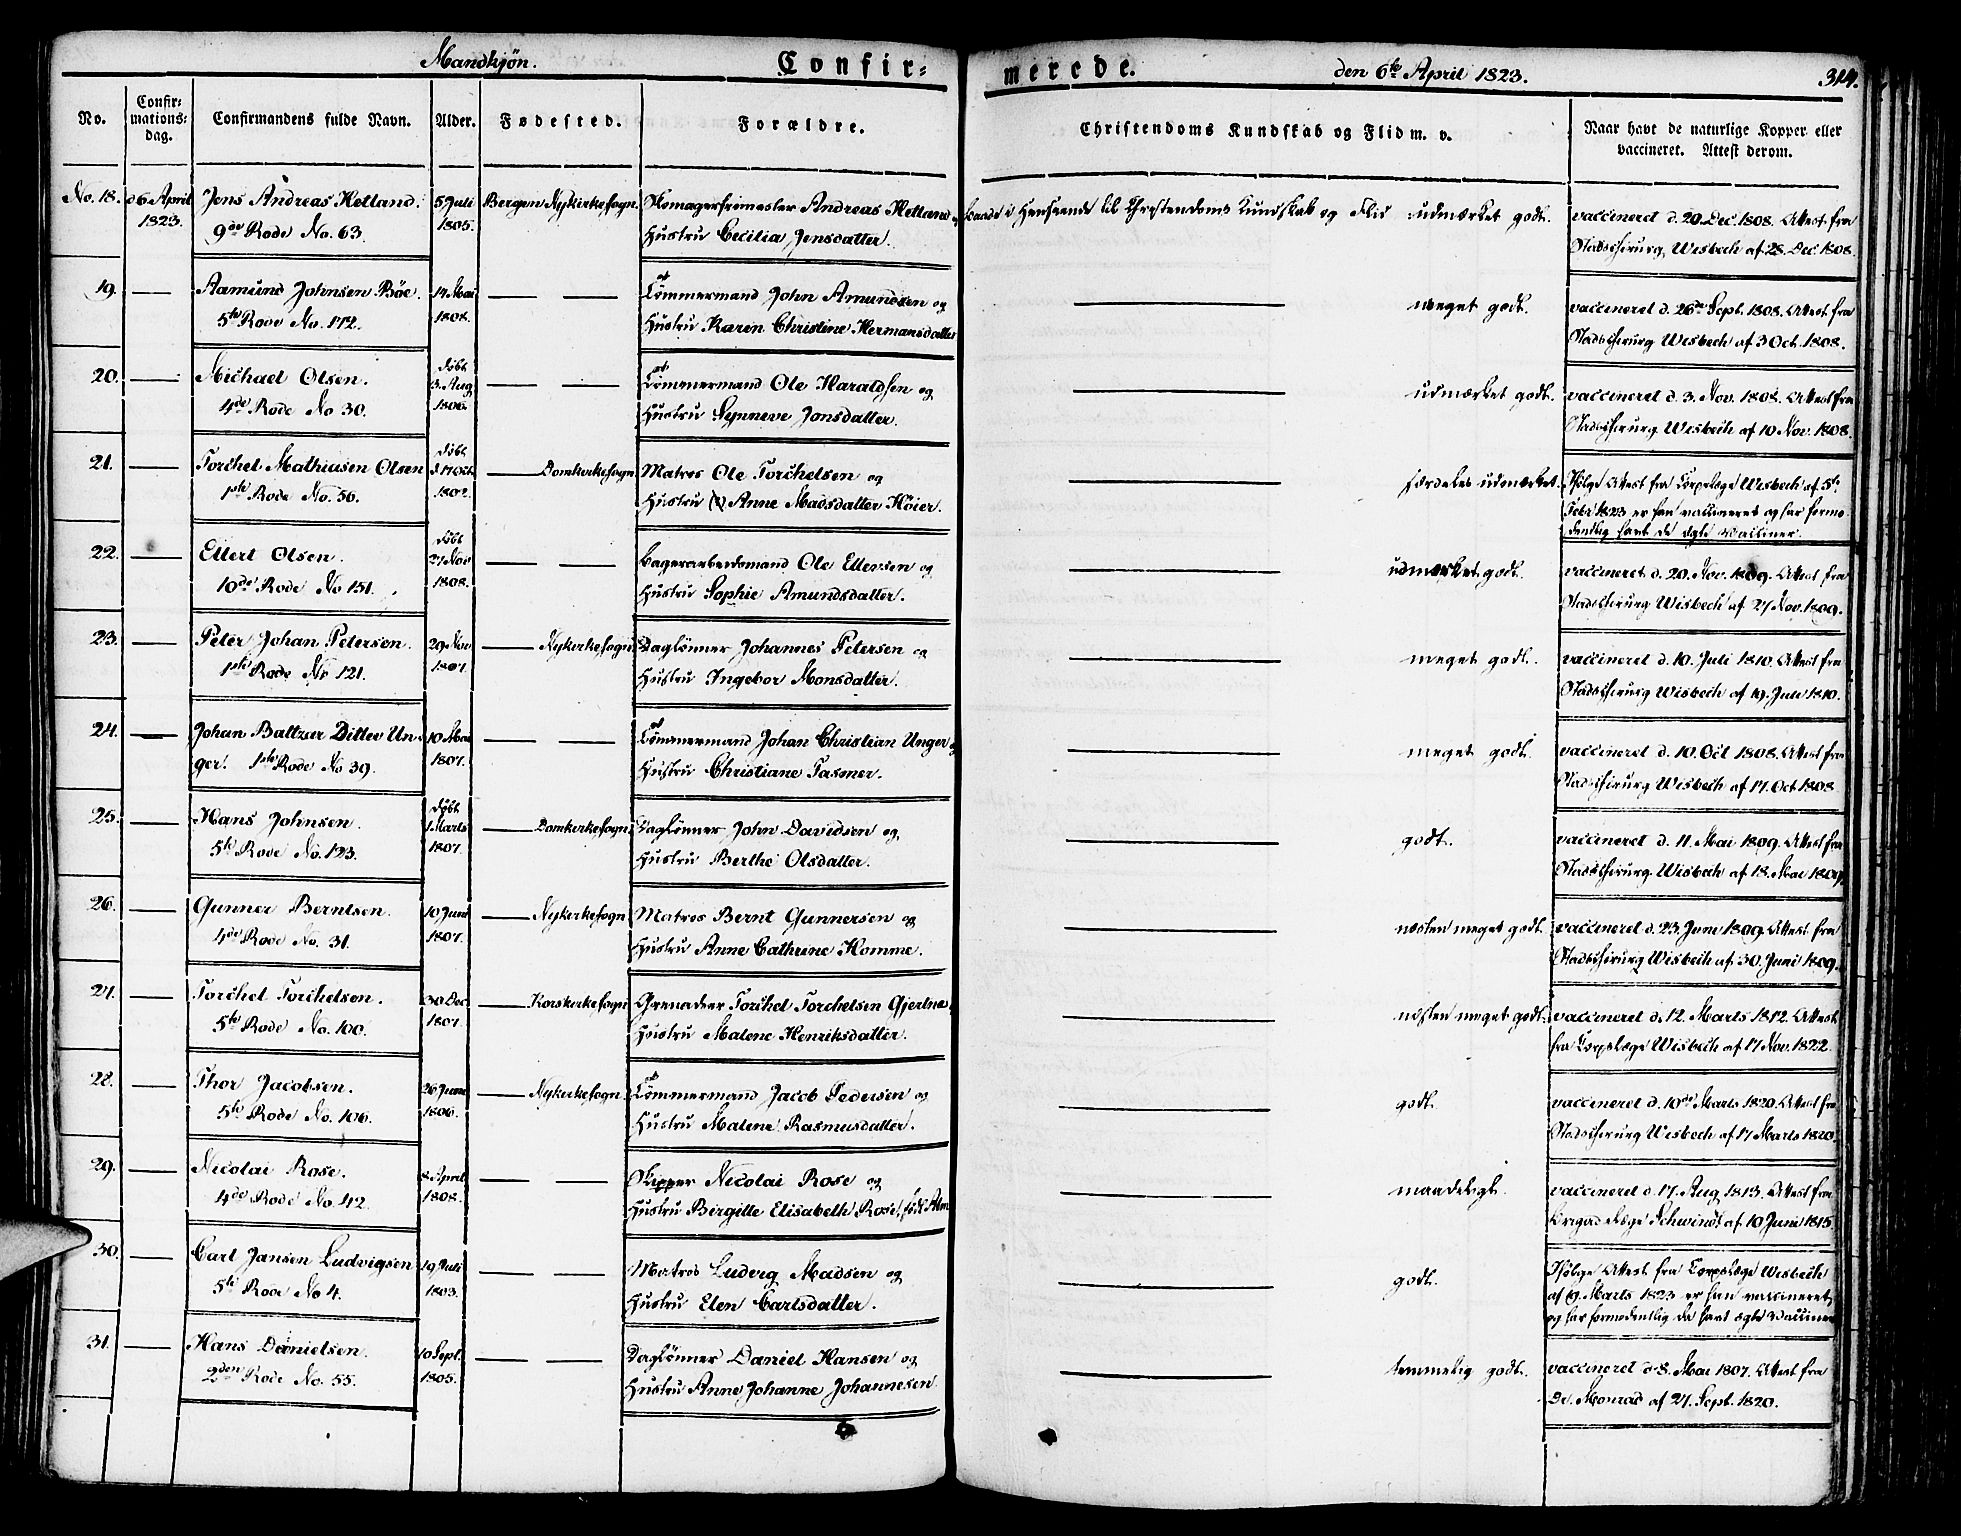 Mandkjøn.
Confir-
merede.
den 6te April 1823.
314.
No.
Confir-
mations-
dag.
Confirmandens fulde Navn.
Alder.
Fødested.
Forældre.
Christendoms Kundskab og Flid m. v.
Naar havt de naturlige Kopper eller
vaccineret. Attest derom.
No. 18. d 6 April Jens Andreas Helland. 5 Juli Bergen Nykirkesogn. Andreas Helland og i Henseende til Christendoms Kundskab og Flid udmærket godt. vaccineret d. 20. Dec. 1808. Attest fra
1823. 9de Rode No. 63. 1805. Hustru Cecilia Jensdatter. Stadschirurg Wisbech af 28. Dec. 1808.
19. Aamund Johnsen Bøe. 14 Mai Tømmermand John Amundsen og meget godt. vaccineret d. 26de Sept. 1808. Attest fra
5te Rode No. 172. 1808. Hustru Karen Christine Hermansdatter Stadschirurg Wisbech af 3 Oct. 1808.
20. Michael Olsen. døbt 3. Aug Tømmermand Ole Haraldsen og udmærket godt. vaccineret d. 3. Nov. 1808. Attest fra
4de Rode No 30. 1806. Hustru Synneve Jonsdatter. Stadschirurg Wisbech af 10 Nov. 1808.
21. Torchel Mathiasen Olsen døbt Domkirkesogn Matros Ole Torchelsen og særdeles udmærket. Ifølge Attest fra Corpslæge Wisbech af 5te
1ste Rode No. 56. Hustru Anne Madsdatter Höier. Febr 1823 er han vaccineret og har formo-
dentlig havt de ægte Vacciner.
22. Ellert Olsen. døbt 27 Nov Ole Ellersen og udmærket godt. vaccineret d. 20. Nov. 1809. Attest fra
10de Rode No 151. 1808. Hustru Sophie Amundsdatter. Stadschirurg Wisbech af 27 Nov. 1809.
23. Peter Johan Petersen. 29 Nov Nykirkesogn Daglönner Johannes Petersen og meget godt. vaccineret d. 10. Juli 1810. Attest fra
1ste Rode No 121. 1807. Hustru Ingebor Monsdatter. Stadschirurg Wisbech af 19. Juli 1810.
24. Johan Baltzar Ditlev Un- 10 Mai Tømmermand Johan Christian Unger og meget godt. vaccineret d. 10. Oct 1808. Attest fra
ger. 1ste Rode No 39. 1807. Hustru Christiane Tasmer. Stadschirurg Wisbech af 17. Oct 1808.
25. Hans Johnsen. døbt 1 Marts Domkirkesogn Daglönner John Davidsen og godt. vaccineret d. 11. Mai 1809. Attest fra
5te Rode No. 123. 1807. Hustru Berthe Olsdatter. Stadschirurg Wisbech af 18. Mai 1809.
26. Gunner Berntsen. 10 Juni Nykirkesogn Matros Bernt Gunnersen og næsten meget godt. vaccineret d. 23. Juni 1809. Attest fra
4de Rode No. 31. 1807. Hustru Anne Cathrine Homme. Stadschirurg Wisbech af 30. Juni 1809.
27. Torchel Torchelsen. 30 Dec. Korskirkesogn Grenadeer Torchel Torchelsen næsten meget godt. vaccineret d. 12. Marts 1812. Attest
5te Rode No. 100. 1807. Hustru Malene Henriksdatter. fra Corpslæge Wisbech af 17 Nov. 1822.
28. Thor Jacobsen. 26 Juni Nykirkesogn Tømmermand Jacob Pedersen og godt. vaccineret d. 10de Marts 1820. Attest fra
5te Rode No. 106. 1806. Hustru Malene Rasmusdatter. Stadschirurg Wisbech af 17 Marts 1820.
29. Nicolai Rose. 8 April Skipper Nicolai Rose og maadeligt. vaccineret d. 17. Aug 1813. Attest fra
4de Rode No. 42. 1808. Hustru Birgitte Elisabeth Rose, født Brigadelæge Schwindt af 10 Juni 1815.
30. Carl Jansen Ludvigsen 19 Juli Matros Ludvig Madsen og godt. Ifølge Attest fra Corpslæge Wisbech
5te Rode No 4. 1803. Hustru Elen Carlsdatter. af 19. Marts 1823 er han vaccineret
og har formodentlig da havt ægte Vacciner
31. Hans Danielsen. 10 Sept. Daglönner Daniel Hansen og temmelig godt. vaccineret d. 8. Mai 1807. Attest fra
2den Rode No. 55. 1805. Hustru Anne Johanne Johannesen. Dr. Monrad af 27. Sept. 1820.